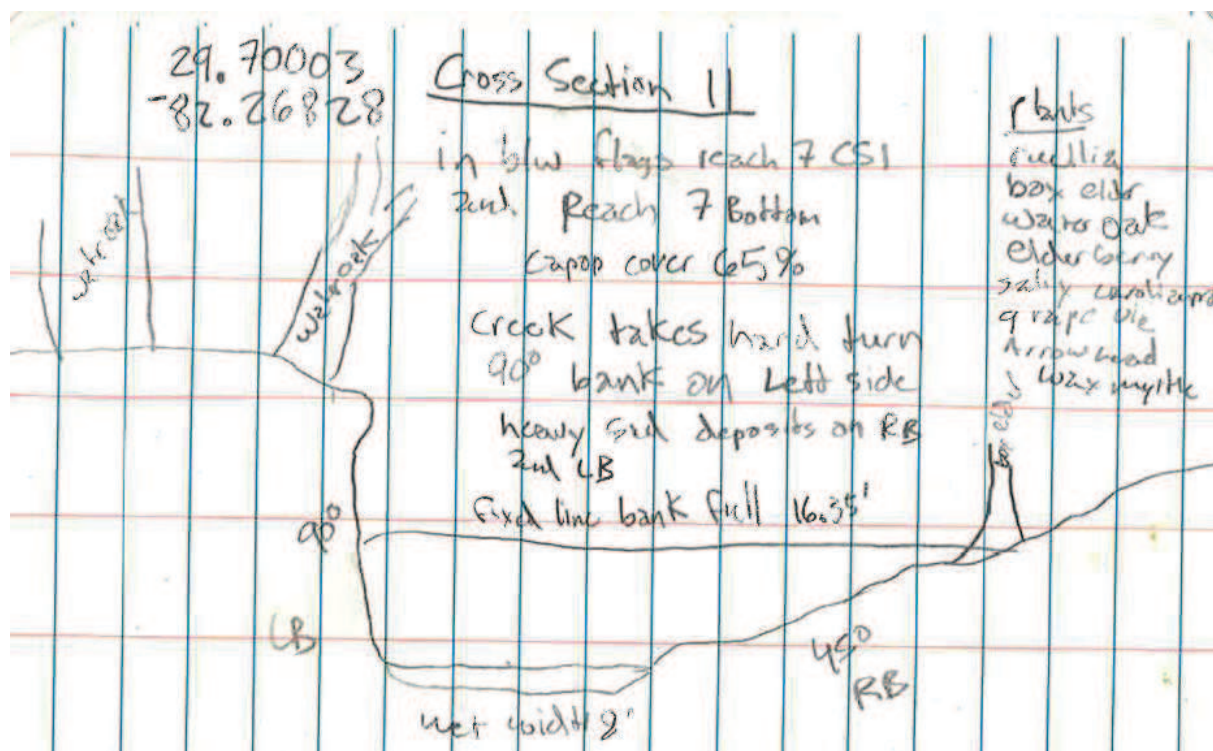 29.70003
-82.26828
Cross Section 11
in b/w flags reach 7 CS1
and Reach 7 Bottom
capop cover 65%
Creek takes hard turn
90° bank on Left side
heavy sed deposits on RB
and LB
fixed line bank full 16.35'
plants
ruellia
box elder
water oak
elderberry
salix caroliniana
grape vie
Arrowhead
wax myrtle
water oak
water oak
box elder
90°
LB
45°
RB
wet width 8'